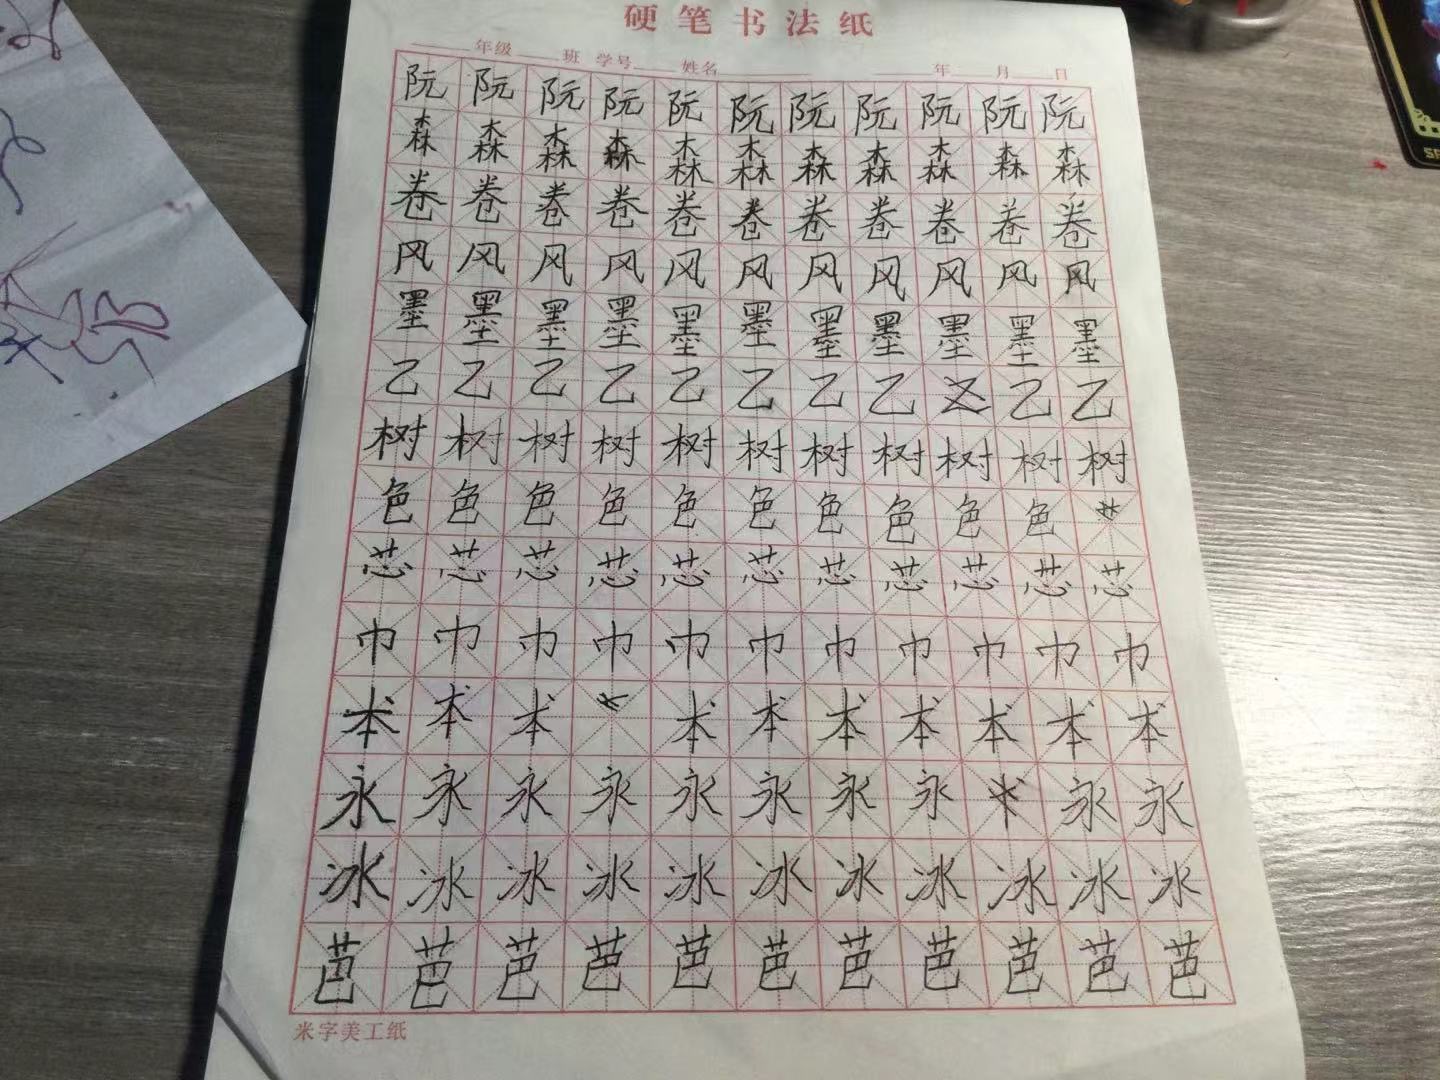 硬笔书法纸
年级 班 学号 姓名 年 月 日
阮阮阮阮阮阮阮阮阮阮阮
森森森森森森森森森森森
卷卷卷卷卷卷卷卷卷卷卷
风风风风风风风风风风风
墨墨墨墨墨墨墨墨墨墨墨
乙乙乙乙乙乙乙乙乙乙
树树树树树树树树树树树
色色色色色色色色色色
芯芯芯芯芯芯芯芯芯芯芯
巾巾巾巾巾巾巾巾巾巾巾
本本本本本本本本本本
永永永永永永永永永永
冰冰冰冰冰冰冰冰冰冰冰
芭芭芭芭芭芭芭芭芭芭芭
米字美工纸